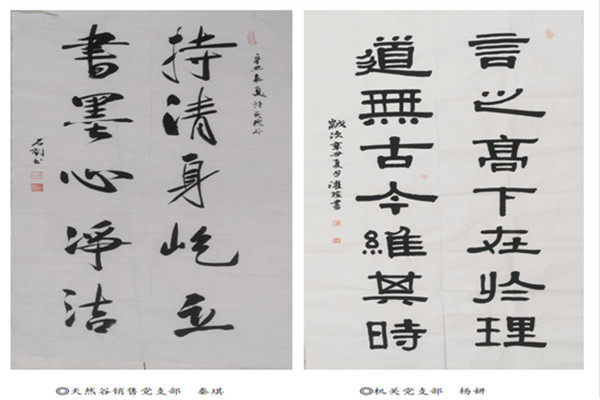 持清身屹立
書墨心淨洁
言之髙下在扵理
道無古今維其時
歲次辛丑夏月
◎天然谷销售党支部 秦琪
◎机关党支部 杨妍